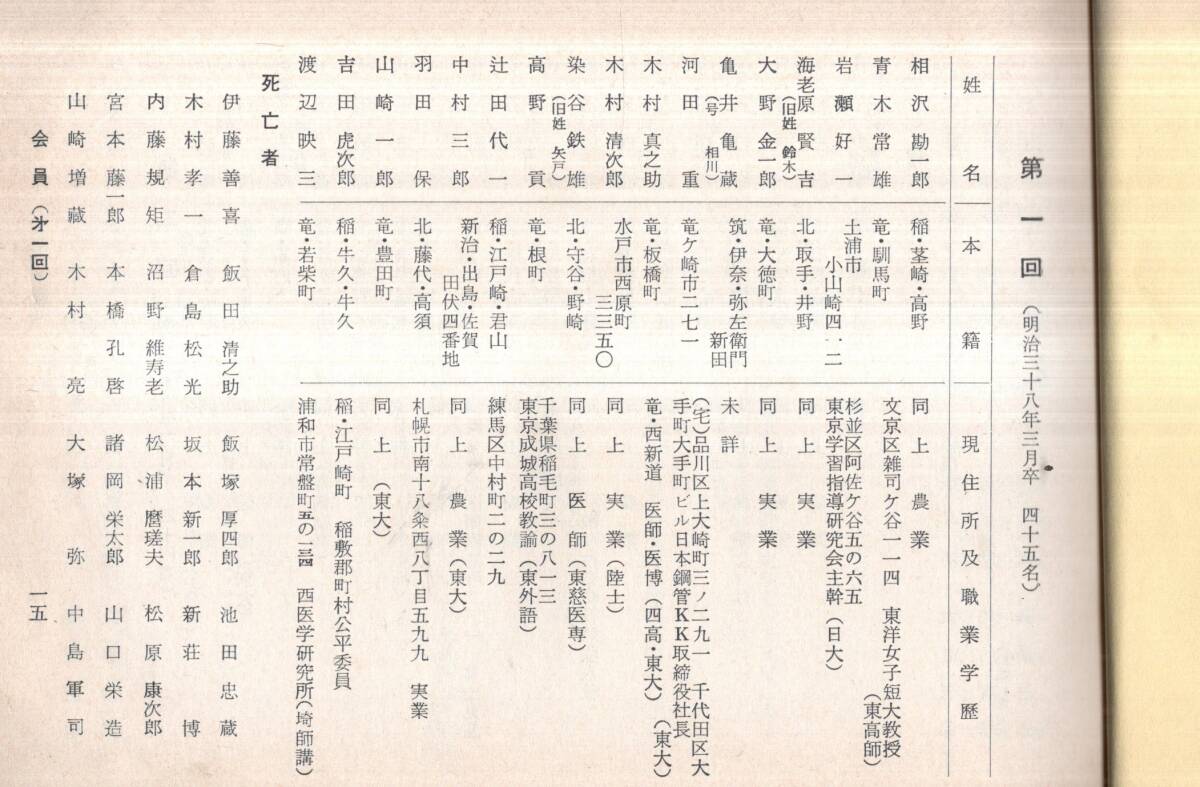 第一回（明治三十八年三月卒　四十五名）
姓名　本籍　現住所及職業学歴
相沢勘一郎　稲・茎崎・高野　同上　農業
青木常雄　竜・馴馬町　文京区雑司ケ谷一一四　東洋女子短大教授（東高師）
岩瀬好　土浦市小山崎四．二　杉並区阿佐ケ谷五の六五　東京学習指導研究会主幹（日大）
海老原賢吉（旧姓　鈴木）　北・取手・井野　同上　実業
大野金一郎　竜・大徳町　同上　実業
亀井亀蔵（号　相川）　筑・伊奈・弥左衛門新田　未詳
河田重　竜ケ崎市二七一　（宅）品川区上大崎町三ノ二九一　千代田区大手町大手町ビル日本鋼管KK取締役社長（東大）
木村真之助　竜・板橋町　竜・西新道　医師・医博（四高・東大）
木村清次郎　水戸市西原町三三五〇　同上　実業（陸士）
染谷鉄雄（旧姓　矢戸）　北・守谷・野崎　同上　医師（東慈医専）
高野貢　竜・根町　千葉県稲毛町三の八一三　東京成城高校教諭（東外語）
辻田代一　稲・江戸崎・君山　練馬区中村町二の二九
中村三郎　新治・出島・佐賀　田伏四番地　同上　農業（東大）
羽田保　北・藤代・高須　札幌市南十八条西八丁目五九九　実業
山崎一郎　竜・豊田町　同上（東大）
吉田虎次郎　稲・牛久・牛久　稲・江戸崎町　稲敷郡町村公平委員
渡辺映三　竜・若柴町　浦和市常盤町五の一三四　西医学研究所（埼師講）
死亡者
伊藤善喜　飯田清之助　飯塚厚四郎　池田忠蔵
木村孝一　倉島松光　坂本新一郎　新荘博
内藤規矩　沼野維寿老　松浦麿瑳夫　松原康次郎
宮本藤一郎　本橋孔啓　諸岡栄太郎　山口栄造
山崎増蔵　木村亮　大塚弥　中島軍司
会員（才一回）　一五